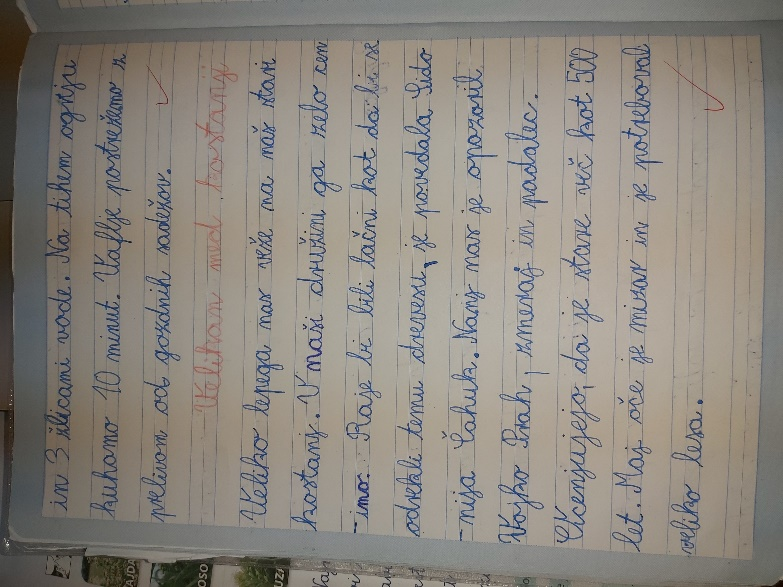 in 3 žlicami vode. Na tihem ognju
kuhamo 10 minut. Vaflje postrežemo s
prelivom od gozdnih sadežev.
Velikan med kostanji
Veliko lepega nas veže na naš stari
kostanj. V naši družini ga zelo cen
-imo. Raje bi bili lačni kot da bi se
odrekli temu drevesu, je povedala Lido
-nija Čahuk. Nanj nas je opozoril
Vojko Prah, zmeraj in padalec.
Ocenjujejo, da je stare več kot 500
let. Moj oče je mizar in je potreboval
veliko lesa.